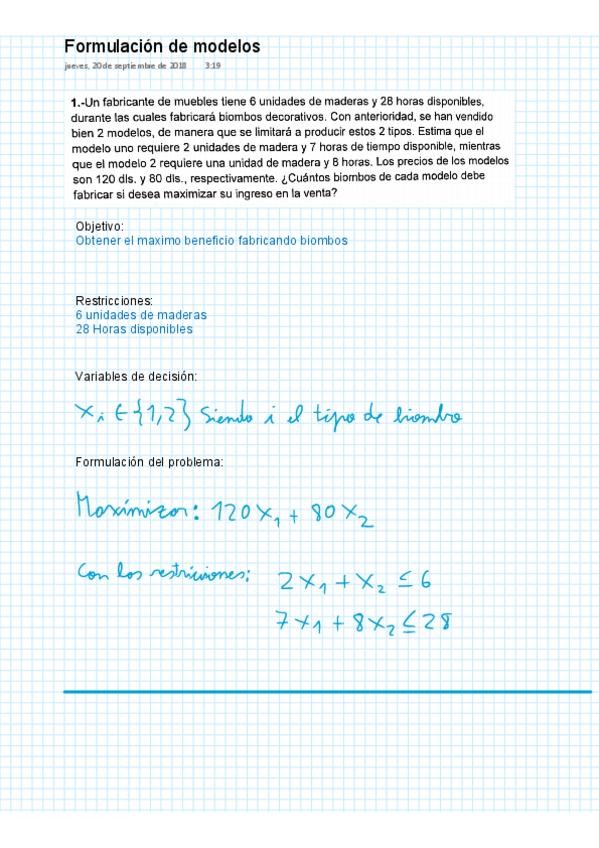 Formulación de modelos
jueves, 20 de septiembre de 2018 3:19
1.-Un fabricante de muebles tiene 6 unidades de maderas y 28 horas disponibles,
durante las cuales fabricará biombos decorativos. Con anterioridad, se han vendido
bien 2 modelos, de manera que se limitará a producir estos 2 tipos. Estima que el
modelo uno requiere 2 unidades de madera y 7 horas de tiempo disponible, mientras
que el modelo 2 requiere una unidad de madera y 8 horas. Los precios de los modelos
son 120 dls. y 80 dls., respectivamente. ¿Cuántos biombos de cada modelo debe
fabricar si desea maximizar su ingreso en la venta?
Objetivo:
Obtener el maximo beneficio fabricando biombos
Restricciones:
6 unidades de maderas
28 Horas disponibles
Variables de decisión:
Xi ∈ {1,2} Siendo i el tipo de biombo
Formulación del problema:
Maximizar: 120X₁ + 80X₂
Con las restricciones: 2X₁ + X₂ ≤ 6
7X₁ + 8X₂ ≤ 28